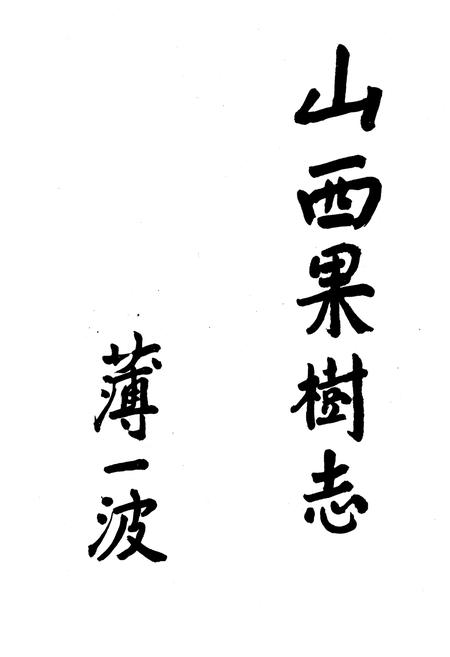 山西果樹志
薄一波